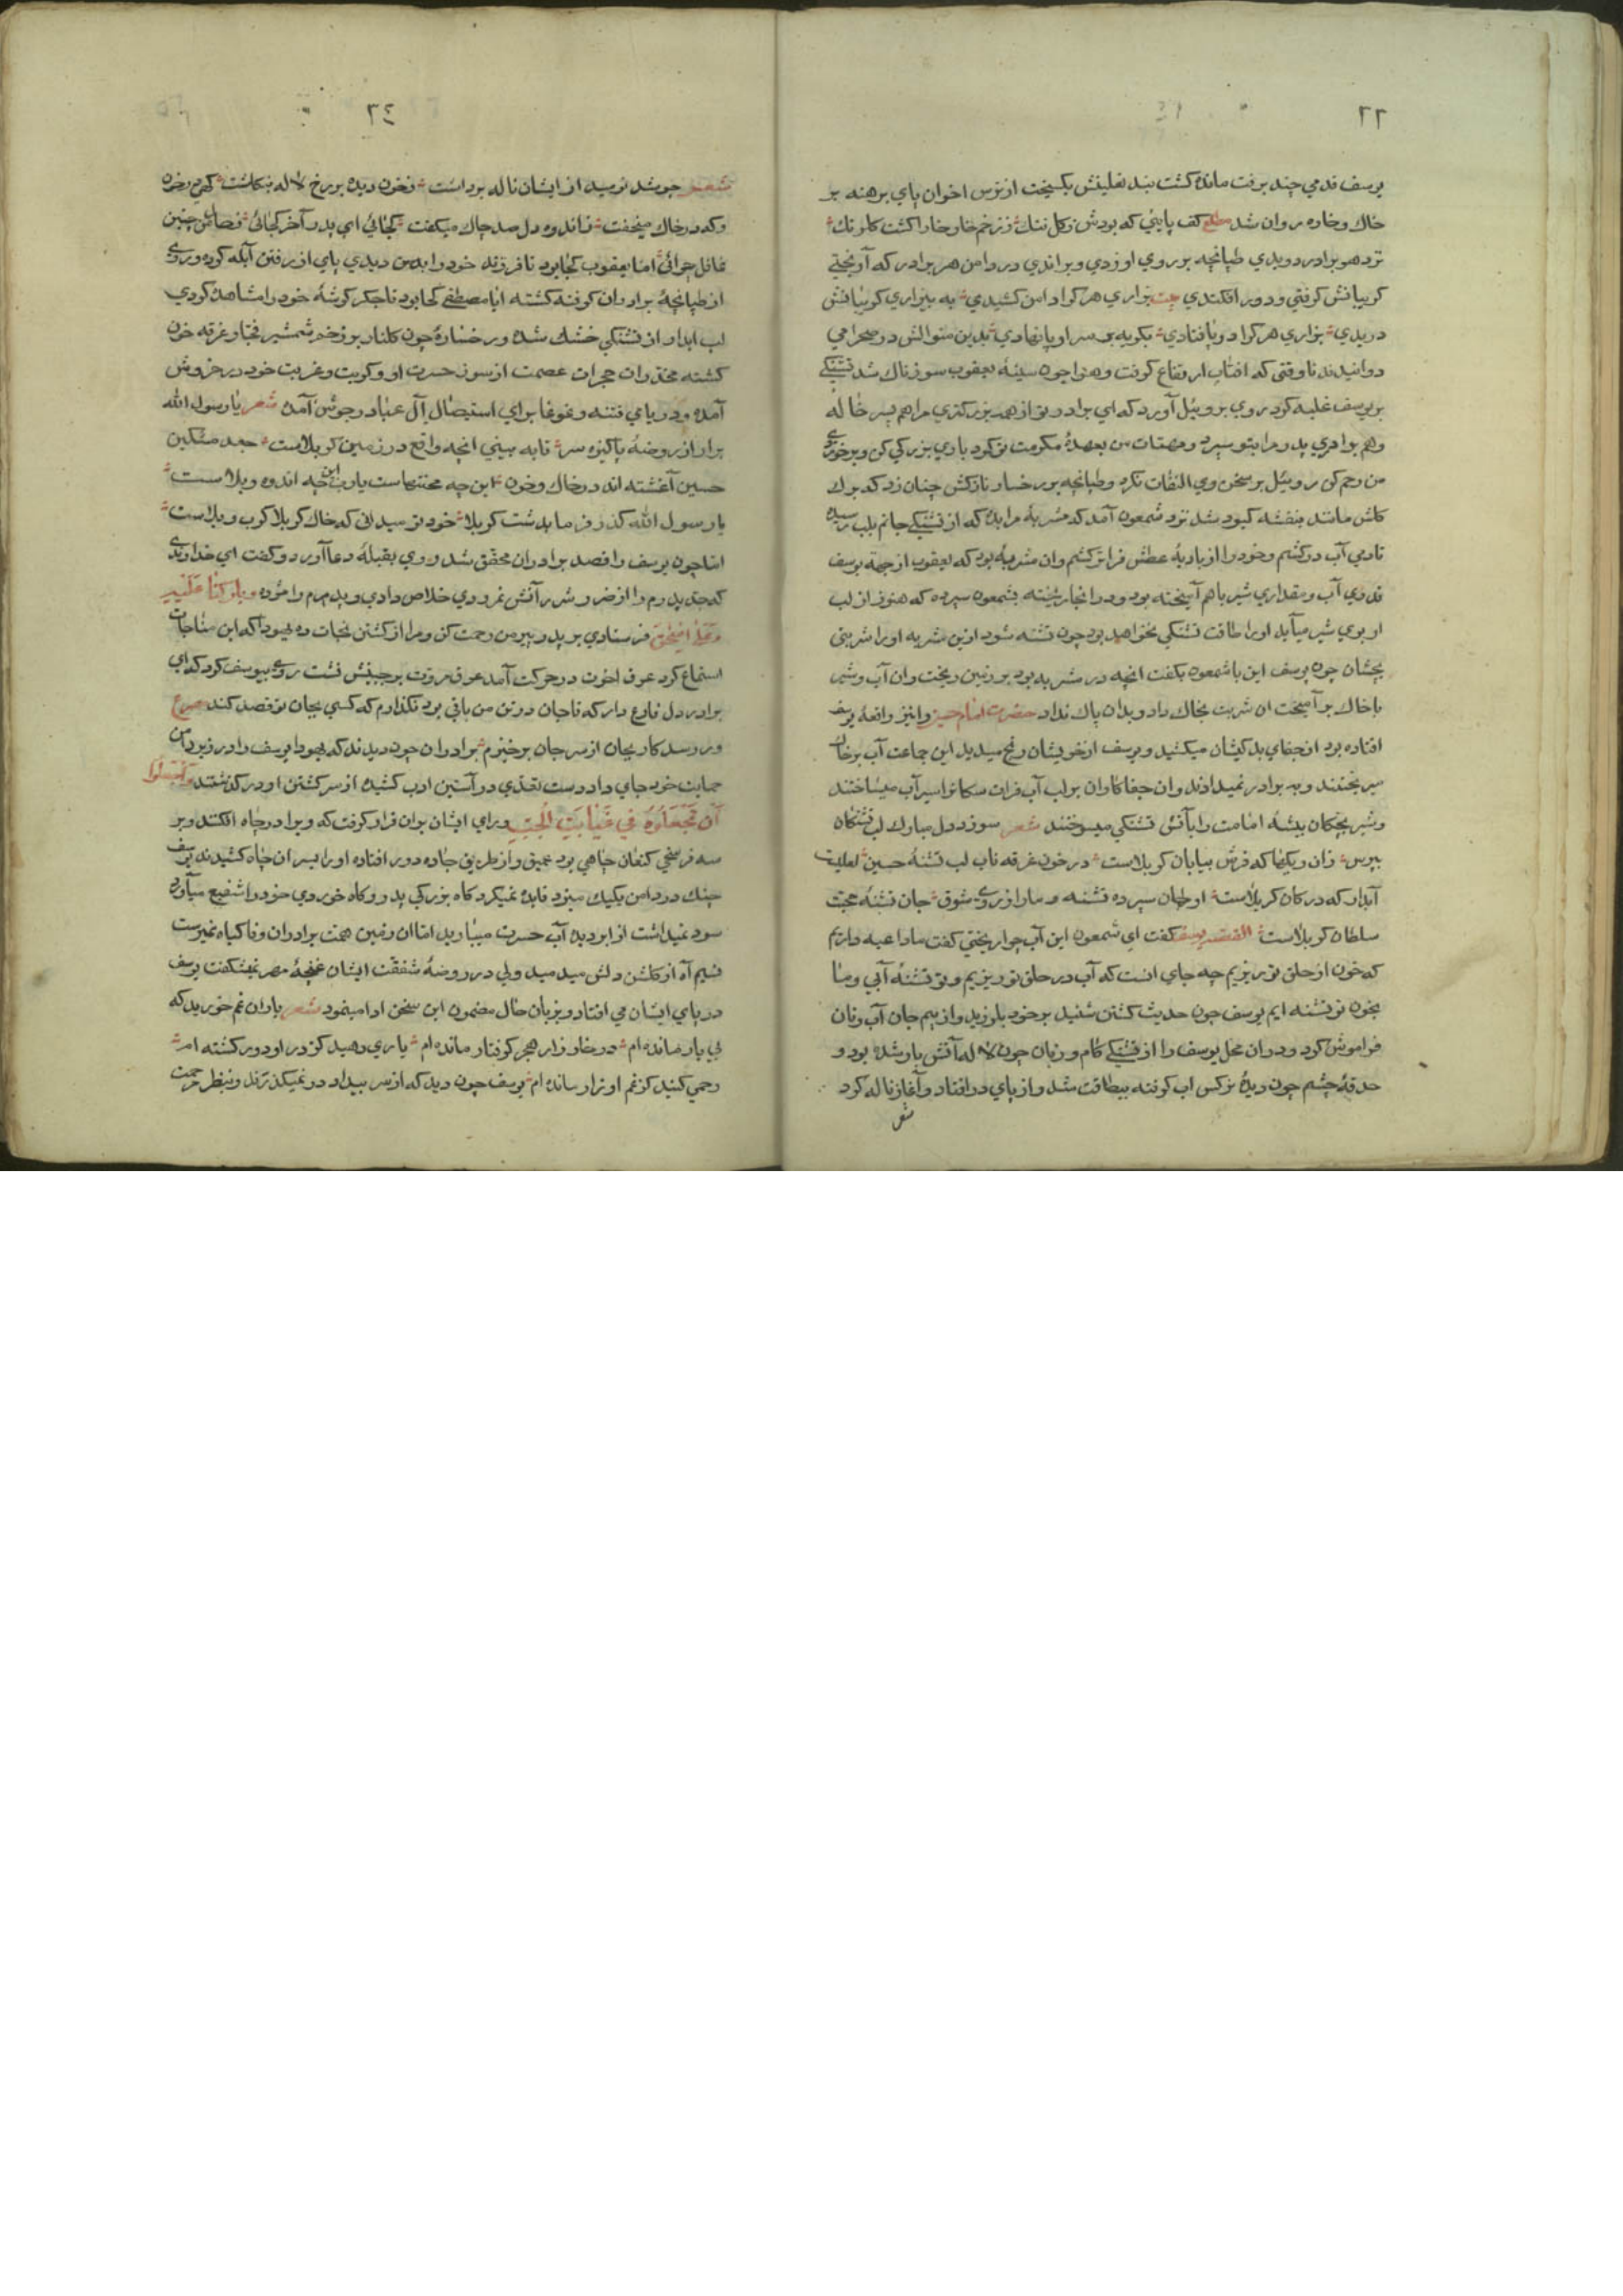 ٢٣
يوسف قدمي چند برفت مانده گشت بند نعلينش بگسيخت از ترس اخوان پاي برهنه بر
خاك و خاره روان شد مطلع كف پايئي كه بودش ز گل ننك ز زخم خار خارا گشت گلرنك
نزد هر برادر دويدي طپانچه بر روي او زدي و براندي در دامن هر برادر كه آويختي
گريبانش گرفتي و دور افكندي بيت بزاري هر كرا دامن كشيدي به بيزاري گريبانش
دريدي بزاري هر كرا در پا فتادي بگريه بر سر او پا نهادي بدين منوالش در صحرا مي
دوانيدند تا وقتي كه افتاب ارتفاع گرفت و هوا چون سينهٔ يعقوب سوزناك شد تشنگي
بر يوسف غلبه كرد روي بروبيل آورد كه اي برادر تو از همه بزرگتري مرا هم پسر خاله
و هم برادري پدر مرا بتو سپرد و مهمات من بعهدهٔ مكرمت تو كرد باري بزركي كن و بر خوردي
من رحم كن روبيل بر سخن وي التفات نكرد و طپانچه بر رخسار نازكش چنان زد كه برك
گلش مانند بنفشه كبود شد نزد شمعون آمد كه مشربهٔ مرا بده كه از تشنگي جانم بلب رسيده
تا دمي آب دركشم و خود را از باديهٔ عطش فراتر كشم و ان مشربهٔ بود كه يعقوب از جهة يوسف
قدري آب و مقداري شير باهم آميخته بود و در انجا ريخته بشمعون سپرده كه هنوز از لب
او بوي شير ميآيد او را طاقت تشنگي نخواهد بود چون تشنه شود ازين مشربه او را شربتي
بچشان چون يوسف اين با شمعون بگفت انچه در مشربه بود بر زمين ريخت و ان آب و شير
با خاك بر آميخت ان شربت بخاك داد و بدان پاك نداد حضرت امام حسين را نيز واقعهٔ يوسف
افتاده بود از جفاي بدكيشان ميكشيد و يوسف از خويشان رنج ميديد اين جماعت آب بر خاك
ميريختند و به برادر نميدادند و ان جفاكاران بر لب آب فرات سگانرا سيرآب ميساختند
و شير بچگان بيشهٔ امامت را بآتش تشنگي ميسوختند شعر سوز دل مبارك لب تشنگان
بپرس زان ريكها كه فرش بيابان كربلاست در خون غرقه ناب لب تشنهٔ حسين لعليست
آبدار كه در كان كربلاست او جان سپرده تشنه و ما را ز روي شوق جان تشنهٔ محبت
سلطان كربلاست القصه يوسف گفت اي شمعون اين آب چرا ريختي گفت ما داعيه داريم
كه خون از حلق تو بريزيم چه جاي انست كه آب در حلق تو ريزيم و تو تشنهٔ آبي و ما
بخون تو تشنه ايم يوسف چون حديث كشتن شنيد بر خود بلرزيد و از بيم جان آب و نان
فراموش كرد و دران محل يوسف را از تشنگي كام و زبان چون لاله آتش بار شده بود و
حدقهٔ چشم چون ديدهٔ نركس اب گرفته بيطاقت شد و از پاي در افتاد و آغاز ناله كرد
شعر
٢٤
شعر چو شد نوميد از ايشان ناله برداشت ز خون ديده بر رخ لاله بنگاشت گهي در خون
و گه در خاك ميخفت ز اندوه دل صد چاك ميگفت كجائي اي پدر آخر كجائي ز حال من چنين
غافل چرائي اما يعقوب كجا بود تا فرزند خود را بدين ديدي پاي از رفتن آبله كرده و روي
از طپانچهٔ برادران كوفته گشته ايا مصطفي كجا بود تا جگر گوشهٔ خود را مشاهده كردي
لب ابدار از تشنگي خشك شده و رخسارهٔ چون گلنار بر زخم شمشير فجار غرقه خون
گشته مخدرات حجرات عصمت از سوز حسرت او و كربت و غربت خود در خروش
آمده و درياي فتنه و غوغا براي استيصال آل عبا در جوش آمده شعر يا رسول الله
برار از روضهٔ پاكيزه سر تا به بيني انچه واقع در زمين كربلاست جعد مشكين
حسين آغشته اند در خاك و خون اين چه محنتهاست يارب اين چه اندوه و بلاست
يا رسول الله گذر فرما بدشت كربلا خود تو ميداني كه خاك كربلا كرب و بلاست
اما چون يوسف را قصد برادران محقق شد روي بقبلهٔ دعا آورد و گفت اي خداوندي
كه جد پدرم را از ضرر و شرر آتش نمرودي خلاص دادي و پدرم را مژده وباركنا عليه
وعلى اسحق فرستادي بر پدر پير من رحمت كن و مرا از كشتن نجات ده يهودا كه اين مناجات
استماع كرد عرق اخوت در حركت آمد عرق مروت بر جبينش نشست روي بيوسف كرد كه اي
برادر دل فارغ دار كه تا جان در تن من باقي بود نگذارم كه كسي بجان تو قصد كند مصرع
ور رسد كار بجان از سر جان برخيزم برادران چون ديدند كه يهودا يوسف را در زير دامن
حمايت خود جاي داد دست تعدي در آستين ادب كشيده از سر كشتن او در گذشتند وأجمعوا
أن تجعلوه في غيابت الجب و راي ايشان بران قرار گرفت كه ويرا در چاه افكنند و بر
سه فرسخي كنعان چاهي بود عميق و از طريق جاده دور افتاده او را بسر ان چاه كشيدند يوسف
چنك در دامن يكيك ميزد فايده نميكرد گاه بزركي پدر و گاه خوردي خود را شفيع ميآورد
سود نميداشت از ابر ديده آب حسرت ميباريد اما ان زمين همت برادران وفا گياه نميرست
نسيم آه از گلشن دلش ميدميد ولي در روضهٔ شفقت ايشان غنچهٔ مهر نميشگفت يوسف
در پاي ايشان مي افتاد و بزبان حال مضمون اين سخن ادا مينمود شعر ياران غم خوريد كه
بي يار مانده ام در خارزار هجر گرفتار مانده ام ياري دهيد كز در او دور گشته ام
رحمي كنيد كز غم او زار مانده ام يوسف چون ديد كه از سر بيداد در نميگذرند و بنظر رحمت